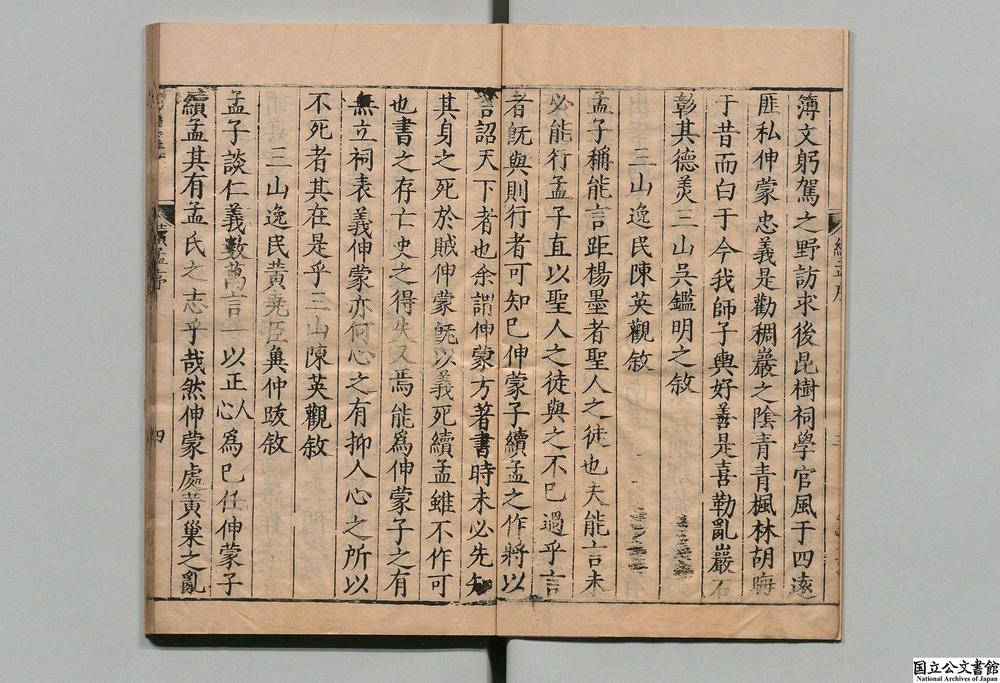 簿文躬駕之野訪求後昆樹祠學官風于四遠
匪私伸蒙忠義是勸稠巖之陰青青楓林胡晦
于昔而白于今我師子輿好善是喜勒亂巖
彰其德美三山吳鑑明之敘
三山逸民陳英觀敘
孟子稱能言距楊墨者聖人之徒也夫能言未
必能行孟子直以聖人之徒與之不已過乎言
者旣與則行者可知已伸蒙子續孟之作將以
言詔天下者也余謂伸蒙方著書時未必先知
其身之死於賊伸蒙旣以義死續孟雖不作可
也書之存亡史之得失又焉能爲伸蒙子之有
無立祠表義伸蒙亦何心之有抑人心之所以
不死者其在是乎三山陳英觀敘
三山逸民黃堯臣冀仲跋敘
孟子談仁義數萬言一以正人心爲已任伸蒙子
續孟其有孟氏之志乎哉然伸蒙處黃巢之亂
續孟序
四
国立公文書館
National Archives of Japan